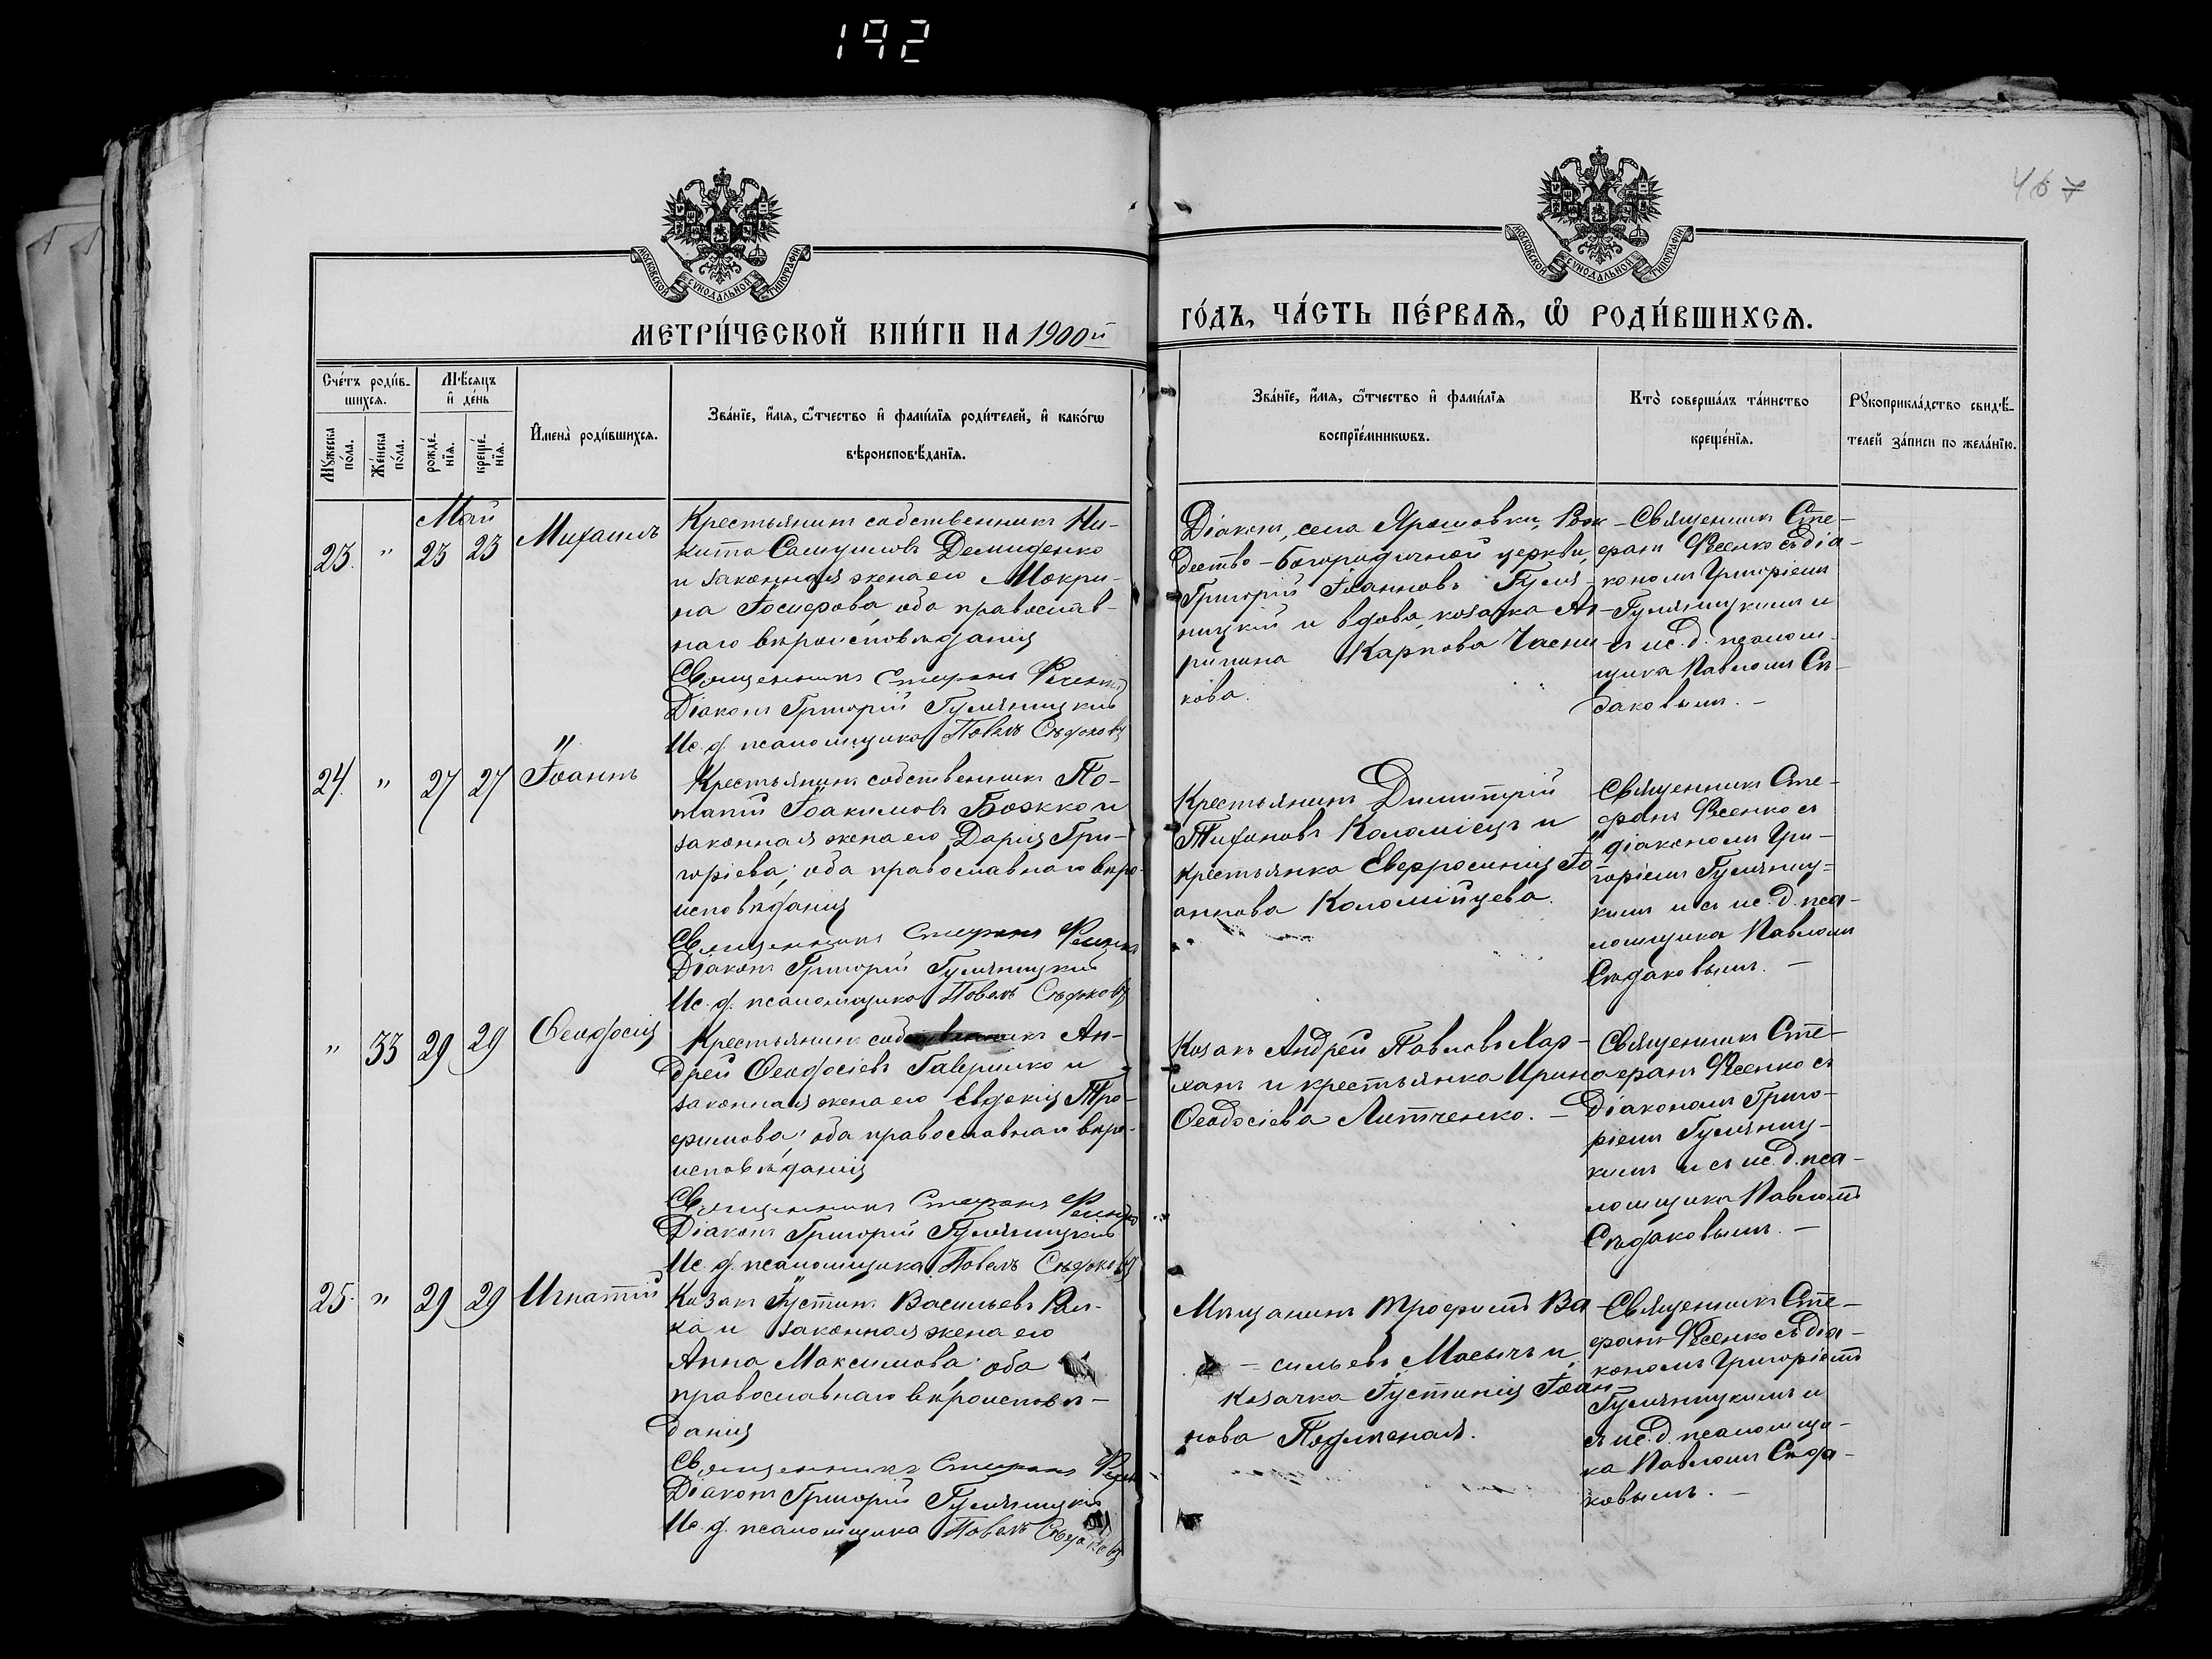 192
467
МОСКОВСКОЙ СУНОДАЛЬНОЙ ТИПОГРАФІИ
МОСКОВСКОЙ СУНОДАЛЬНОЙ ТИПОГРАФІИ
МЕТРИ́ЧЕСКОЙ КНИ́ГИ НА 1900й
ГО́ДЪ, ЧА́СТЬ ПЕ́РВАѦ, Ѡ҆ РОДИ́ВШИХСѦ.
Сче́тъ роди́в-
шихсѧ.
Мꙋ́жеска по́ла.
Же́нска по́ла.
Мѣ́сѧцъ
и҆ де́нь
рожде́-
нїѧ.
креще́-
нїѧ.
И҆мена̀ роди́вшихсѧ.
Зва́нїе, и҆́мѧ, ѻ҆́тчество и҆ фами́лїѧ роди́телей, и҆ како́гѡ
вѣроисповѣ́данїѧ.
Зва́нїе, и҆́мѧ, ѻ҆́тчество и҆ фами́лїѧ
воспрїе́мникѡвъ.
Кто̀ соверша́лъ та́инство
креще́нїѧ.
Рꙋкоприкла́дство свидѣ́-
телей за́писи по жела́нїю.
Май
23. " 23 23 Михаилъ
Крестьянинъ собственникъ Ни-
кита Самуиловъ Демиденко
и законная жена его Макри-
на Іосифова, оба православ-
наго вѣроисповѣданія
Священникъ Стефанъ Фесенко
Діаконъ Григорій Гуляницкій
Ис. д. псаломщика Павелъ Сѣдаковъ
Діаконъ, села Ярошовки, Рож-
дество-Богородичной церкви,
Григорій Іоанновъ Гуля-
ницкій и вдова, козачка Аг-
рипина Карпова Часни-
кова.
Священникъ Сте-
фанъ Фесенко съ діа-
кономъ Григоріемъ
Гуляницкимъ и
съ ис. д. псалом-
щика Павломъ Сѣ-
даковымъ. –
"
24. " 27 27 Іоаннъ
Крестьянинъ собственникъ По-
тапій Іоакимовъ Божко и
законная жена его Дарія Гри-
горіева; оба православнаго вѣро-
исповѣданія
Священникъ Стефанъ Фесенко
Діаконъ Григорій Гуляницкій
Ис. д. псаломщика Павелъ Сѣдаковъ
Крестьянинъ Димитрій
Тихоновъ Коломіецъ и
крестьянка Евфросинія Іо-
аннова Коломійцева.
Священникъ Сте-
фанъ Фесенко съ
діакономъ Гри-
горіемъ Гуляниц-
кимъ и съ ис. д. пса-
ломщика Павломъ
Сѣдаковымъ. –
" 33 29 29 Ѳеодосія
Крестьянинъ собственникъ Ан-
дрей Ѳеодосіевъ Гавришко и
законная жена его Евдокія Тро-
фимова; оба православнаго вѣро-
исповѣданія
Священникъ Стефанъ Фесенко
Діаконъ Григорій Гуляницкій
Ис. д. псаломщика Павелъ Сѣдаковъ
Козакъ Андрей Павловъ Хар-
ханъ и крестьянка Ирина
Ѳеодосіева Литченко. –
Священникъ Сте-
фанъ Фесенко съ
діакономъ Григо-
ріемъ Гуляниц-
кимъ и съ ис. д. пса-
ломщика Павломъ
Сѣдаковымъ. –
25. " 29 29 Игнатій
Козакъ Іустинъ Васильевъ
и законная жена его
Анна Максимова; оба
православнаго вѣроисповѣ-
данія
Священникъ Стефанъ Фесенко
Діаконъ Григорій Гуляницкій
Ис. д. псаломщика Павелъ Сѣдаковъ
Мѣщанинъ Трофимъ Ва-
сильевъ Масычъ и
козачка Іустинія Іоан-
нова Подлѣсная.
Священникъ Сте-
фанъ Фесенко съ діа-
кономъ Григоріемъ
Гуляницкимъ и
съ ис. д. псаломщи-
ка Павломъ Сѣда-
ковымъ. –